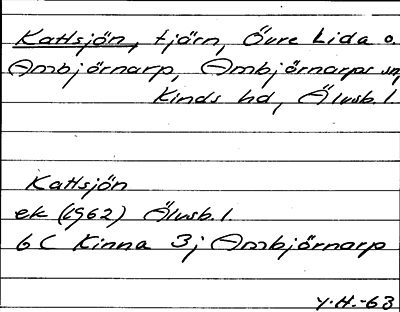 Kattsjön, tjärn, Övre Lida o.
Ambjörnarp, Ambjörnarps sn,
Kinds hd, Älvsb. l.
Kattsjön
ek (1962) Älvsb. l.
6 C Kinna 3j Ambjörnarp
Y.H.-63